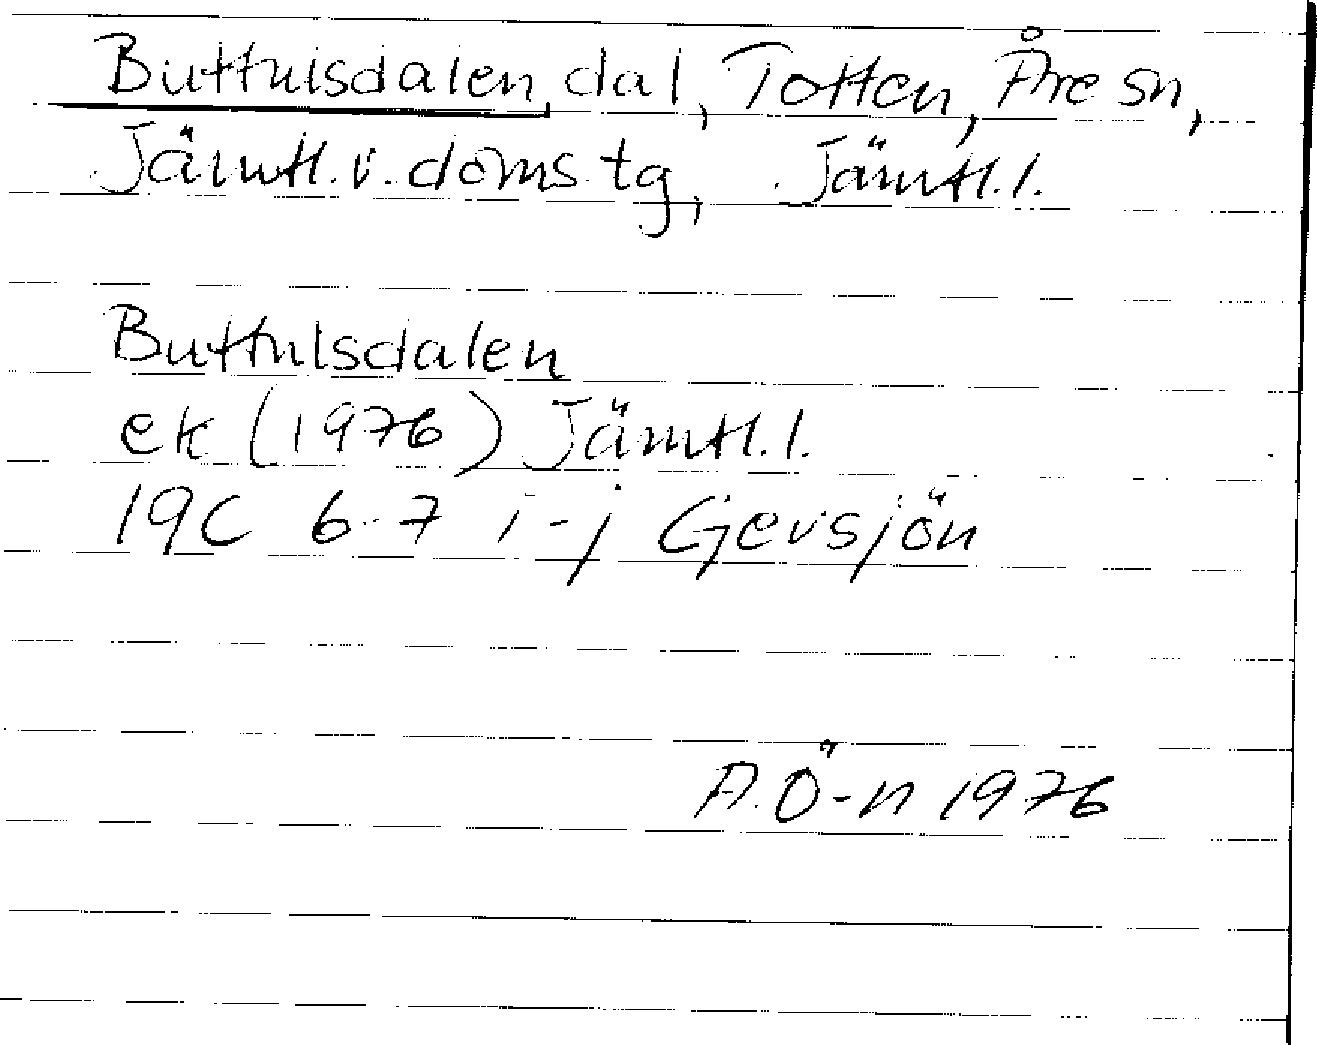 Buttulsdalen, dal, Totten, Åre sn,
Jämtl. v. doms. tg, Jämtl. l.
Buttulsdalen
ek (1976) Jämtl. l.
19C 6-7 i-j Gevsjön
A. Ö-n 1976